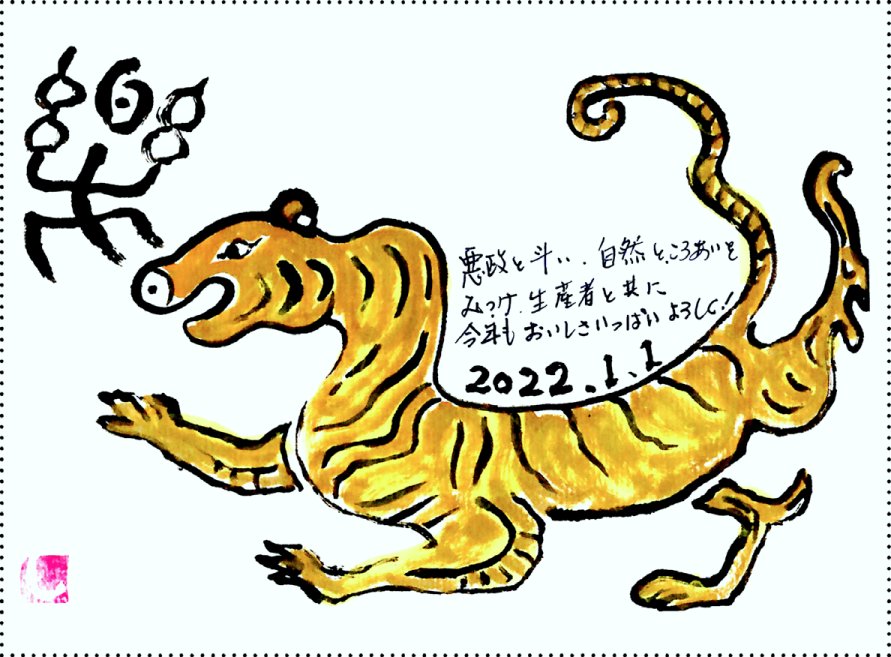 悪政と斗い、自然ところあいを
みつけ、生産者と共に
今年も おいしさいっぱい よろしく!
2022.1.1